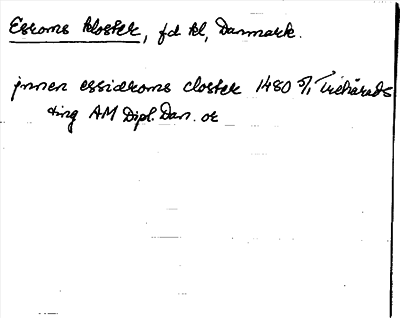 Esroms kloster, fd kl, Danmark.
jnnen essidroms closter 1480 5/1 Trehärads
ting AM Dipl. Dan. or